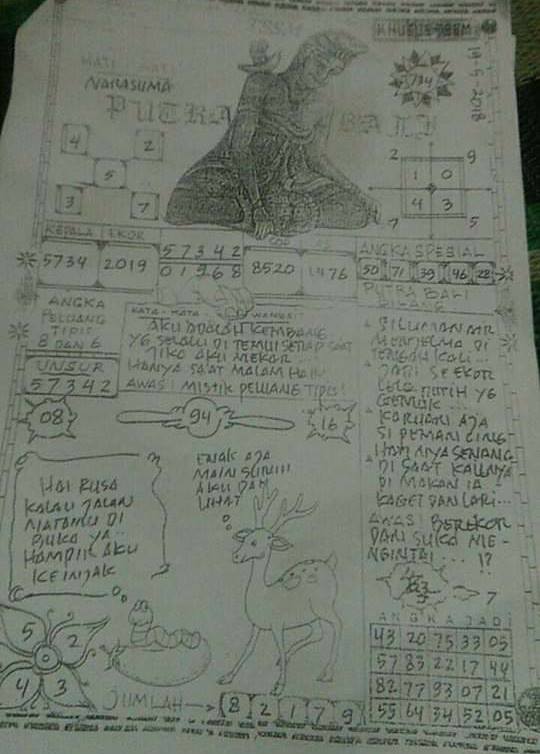 HATI - HATI
NARASUMA
PUTRA BALI
19-5-2018
794
4 2
5
3 7
2 9
1 0
4 3
7 5
KEPALA EKOR
5734 2019
5 7 3 4 2
0 1 9 6 8
COP
8520 1476
ANGKA SPESIAL
50 71 39 46 28
ANGKA
PELUANG
TIPIS
8 DAN 6
UNSUR
5 7 3 4 2
KATA - KATA WANGSIT
AKU ADALAH KEMBANG
YG SELALU DI TEMUI SETIAP SAAT
JIKO AKU MEKAR ...
HANYA SAAT MALAM HARI
AWAS! MISTIK PELUANG TIPIS!
PUTRA BALI
BILANG
SILUMAN AIR
MENJELMA DI
TENGAH KALI ...
JADI SEEKOR
LELE PUTIH YG
GEMUK ...
KARUAN AJA
SI PEMANCING
HATINYA SENANG
DI SAAT KAILNYA
DI MAKAN IA
KAGET DAN LARI ...
AWAS! BEREKOR
DAN SUKA ME-
NGINTAI ... !?
08
94
16
HAI RUSA
KALAU JALAN
MATAMU DI
BUKA YA ..
HAMPIR AKU
KEINJAK
ENAK AJA
MAIN SURUH
AKU DAH
LIHAT
83
7
5 2
0
4 3
JUMLAH → 8 2 1 7 9
ANGKA JADI
43 20 75 33 05
57 83 22 17 44
82 77 93 07 21
55 64 34 52 05